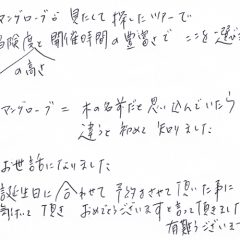 マングローブが 見たくて 探した ツアーで
冒険度と 開催時間の 豊富さで ここを 選び
の高さ
マングローブ = 木の名前だと 思い込んでいたら
違うと 初めて 知りました
お世話になりました
誕生日に 合わせて 予約させて 頂いた事に
気付いて 頂き おめでとうございますと 言って 頂きました
有難うございます